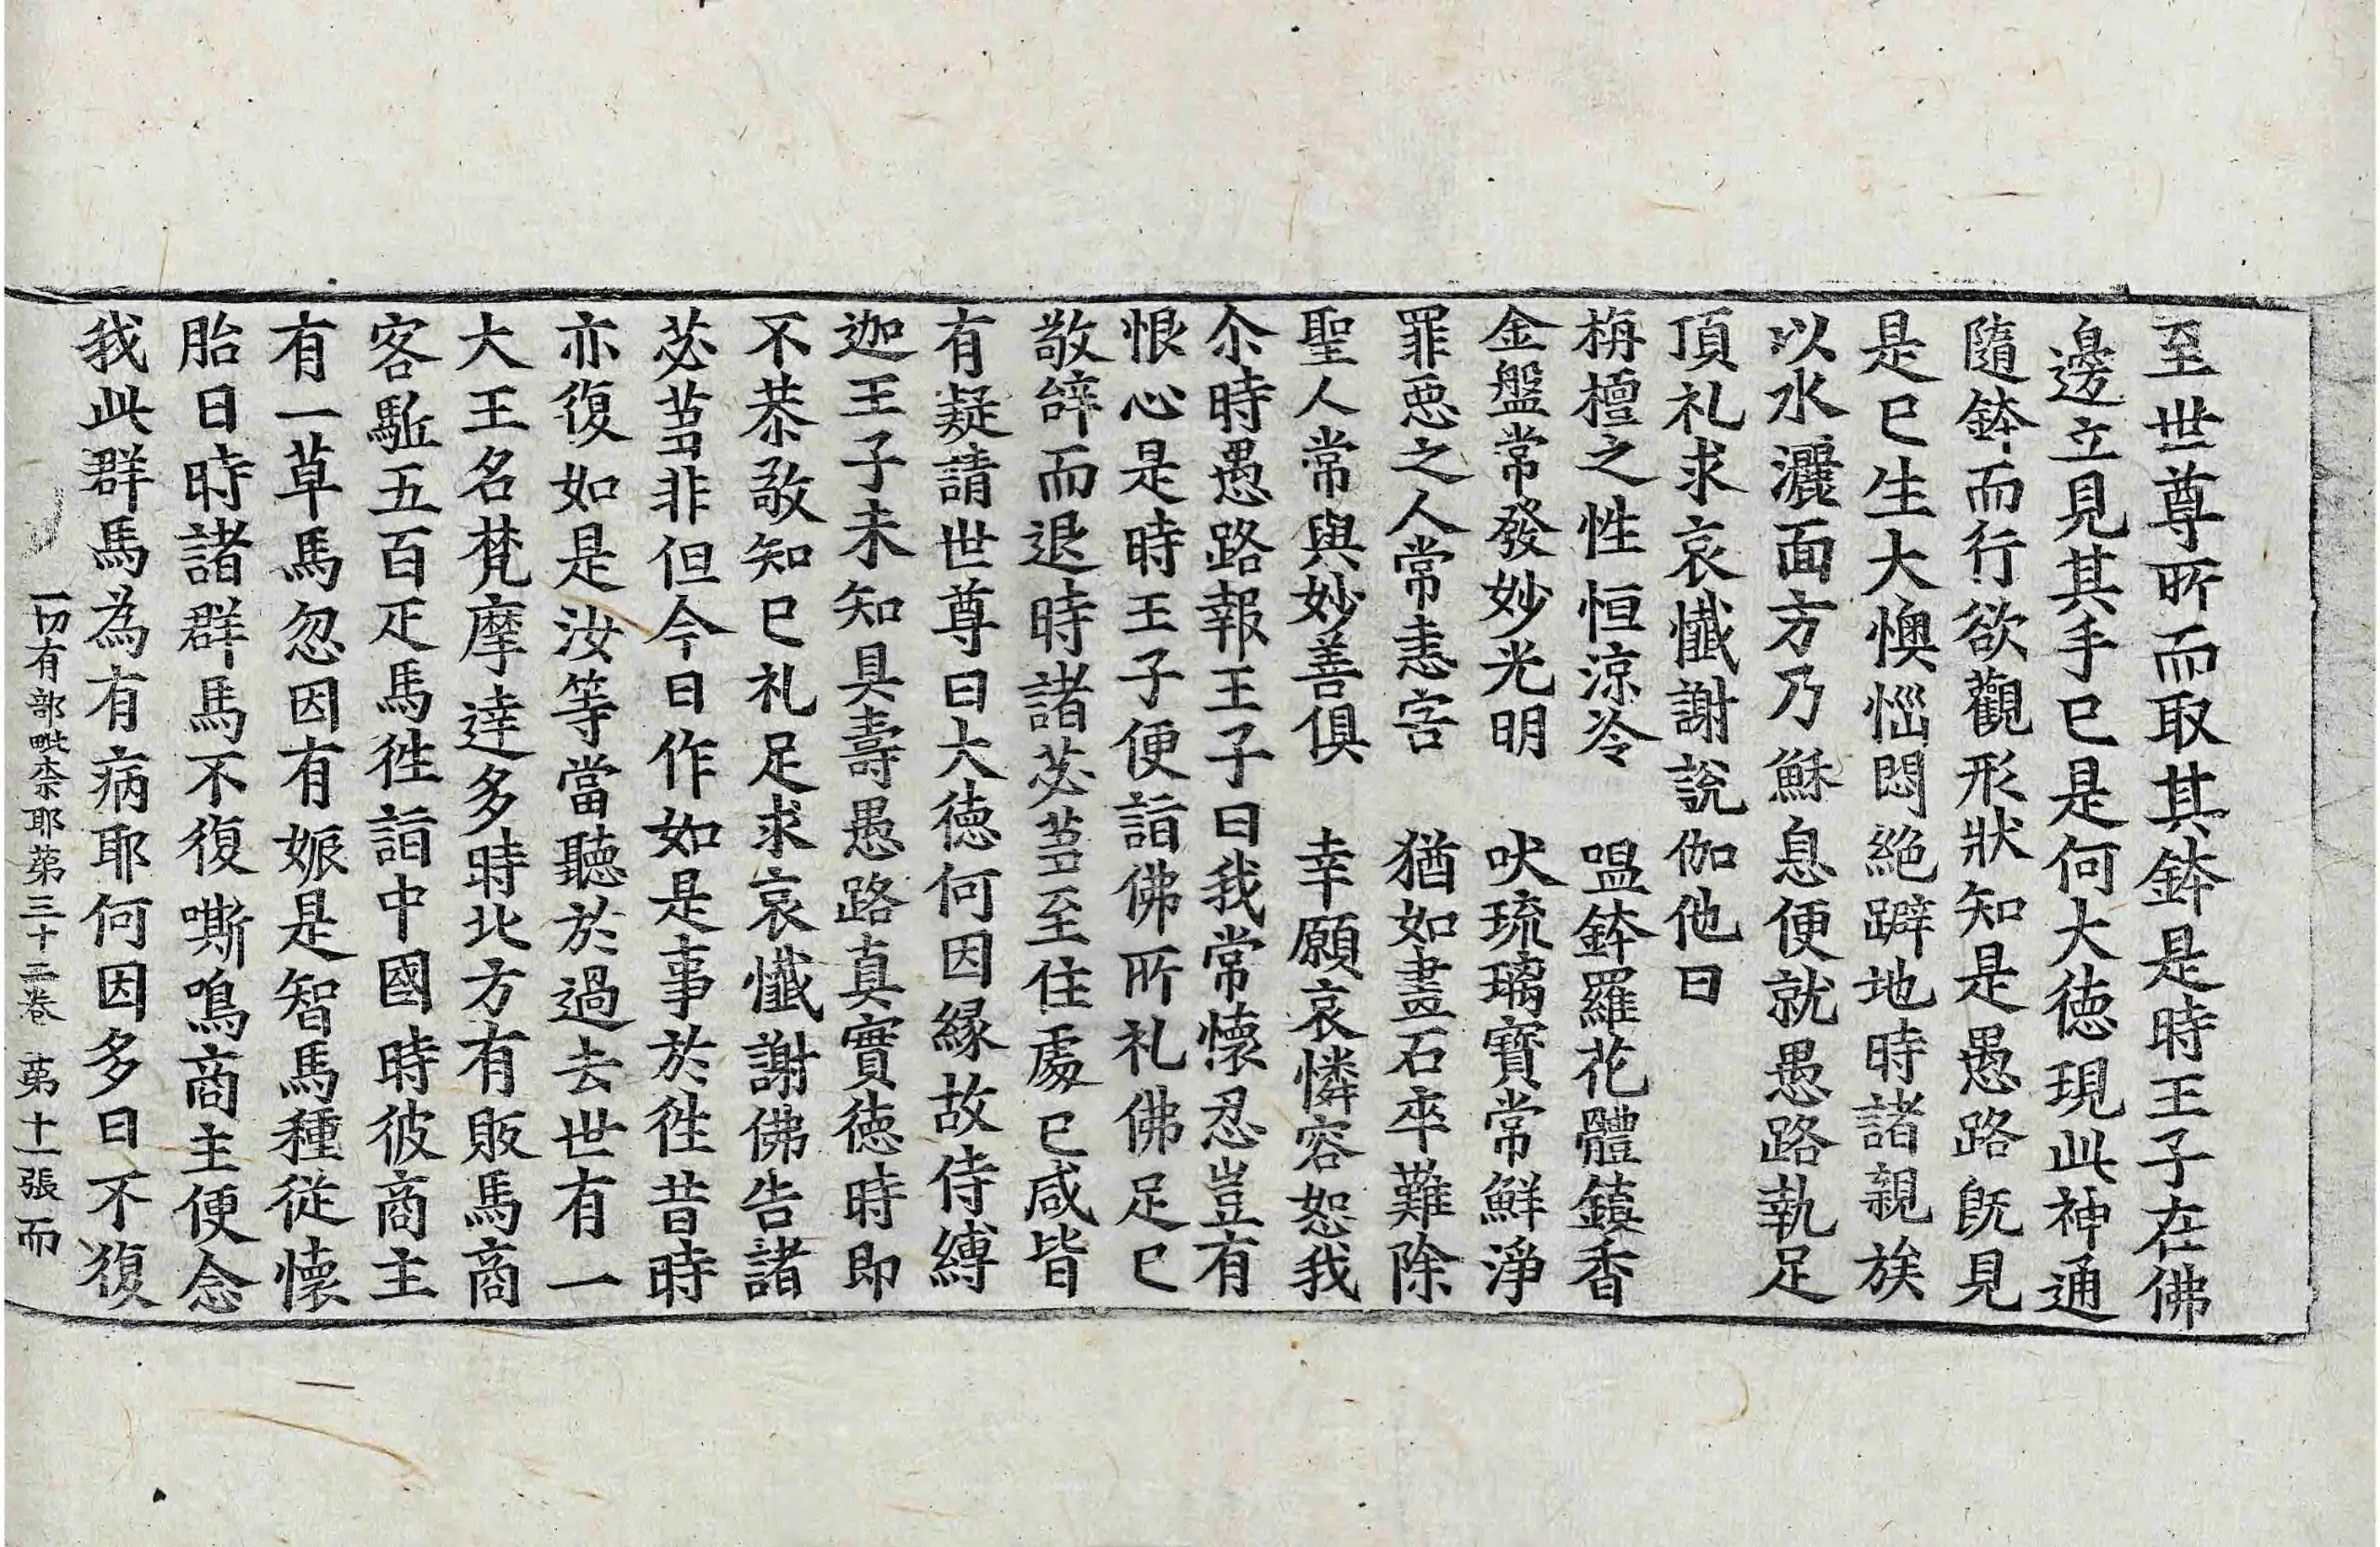 至世尊所而取其鉢是時王子在佛
邊立見其手已是何大徳現此神通
隨鉢而行欲觀形狀知是愚路旣見
是已生大懊惱悶絶躃地時諸親族
以水灑面方乃穌息便就愚路執足
頂礼求哀懺謝說伽他曰
栴檀之性恒涼冷　嗢鉢羅花體鎮香
金盤常發妙光明　吠琉璃寶常鮮淨
罪惡之人常恚害　猶如畫石卒難除
聖人常與妙善俱　幸願哀憐容恕我
尒時愚路報王子曰我常懷忍豈有
恨心是時王子便詣佛所礼佛足已
敬辝而退時諸苾芻至住處已咸皆
有疑請世尊曰大徳何因縁故侍縛
迦王子未知具壽愚路真實徳時即
不恭敬知已礼足求哀懺謝佛告諸
苾芻非但今日作如是事於徃昔時
亦復如是汝等當聽於過去世有一
大王名梵摩達多時北方有販馬商
客駈五百疋馬徃詣中國時彼商主
有一草馬忽因有娠是智馬種從懷
胎日時諸群馬不復嘶鳴商主便念
我此群馬為有病耶何因多日不復
一切有部毗奈耶苐三十二卷　苐十一張　而